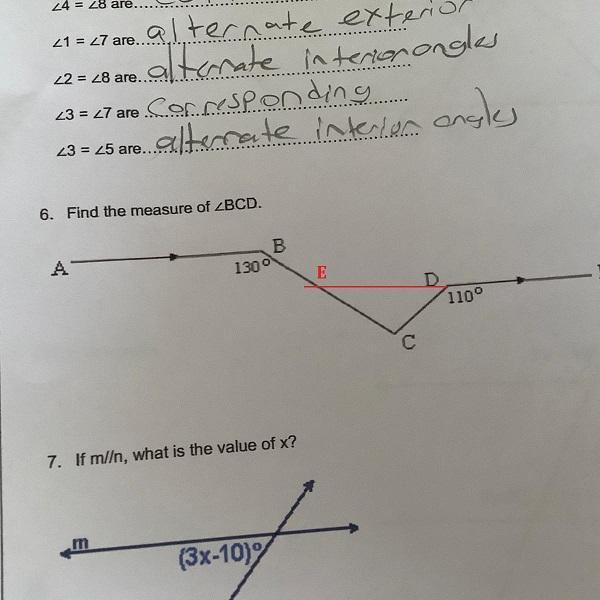 ∠4 = ∠8 are....
∠1 = ∠7 are. alternate exterior
∠2 = ∠8 are. alternate interior angles
∠3 = ∠7 are corresponding
∠3 = ∠5 are... alternate interior angles
6. Find the measure of ∠BCD.
A B 130° E D 110° C
7. If m//n, what is the value of x?
m
(3x-10)°